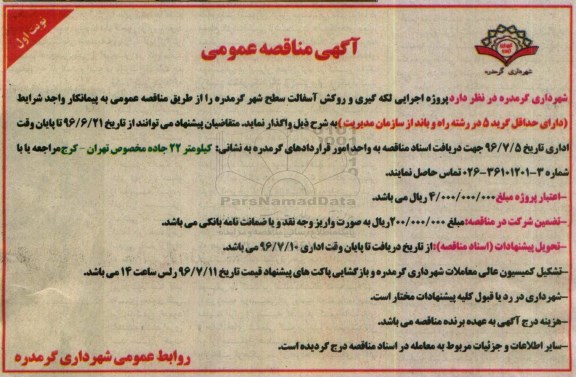 نوبت اول
آگهی مناقصه عمومی
شهرداری گرمدره
شهرداری گرمدره در نظر دارد پروژه اجرایی لکه گیری و روکش آسفالت سطح شهر گرمدره را از طریق مناقصه عمومی به پیمانکار واجد شرایط
(دارای حداقل گرید ۵ در رشته راه و باند از سازمان مدیریت) به شرح ذیل واگذار نماید. متقاضیان پیشنهاد می توانند از تاریخ ۹۶/۶/۲۱ تا پایان وقت
اداری تاریخ ۹۶/۷/۵ جهت دریافت اسناد مناقصه به واحد امور قراردادهای گرمدره به نشانی: کیلومتر ۲۲ جاده مخصوص تهران - کرج مراجعه یا با
شماره ۳-۳۶۱۰۱۲۰۱-۰۲۶ تماس حاصل نمایند.
-اعتبار پروژه مبلغ ۴/۰۰۰/۰۰۰/۰۰۰ ریال می باشد.
-تضمین شرکت در مناقصه: مبلغ ۲۰۰/۰۰۰/۰۰۰ ریال به صورت واریز وجه نقد و یا ضمانت نامه بانکی می باشد.
-تحویل پیشنهادات (اسناد مناقصه): از تاریخ دریافت تا پایان وقت اداری ۹۶/۷/۱۰ می باشد.
-تشکیل کمیسیون عالی معاملات شهرداری گرمدره و بازگشایی پاکت های پیشنهاد قیمت تاریخ ۹۶/۷/۱۱ راس ساعت ۱۴ می باشد.
-شهرداری در رد یا قبول کلیه پیشنهادات مختار است.
-هزینه درج آگهی به عهده برنده مناقصه می باشد.
-سایر اطلاعات و جزئیات مربوط به معامله در اسناد مناقصه درج گردیده است.
روابط عمومی شهرداری گرمدره
ParsNamadData